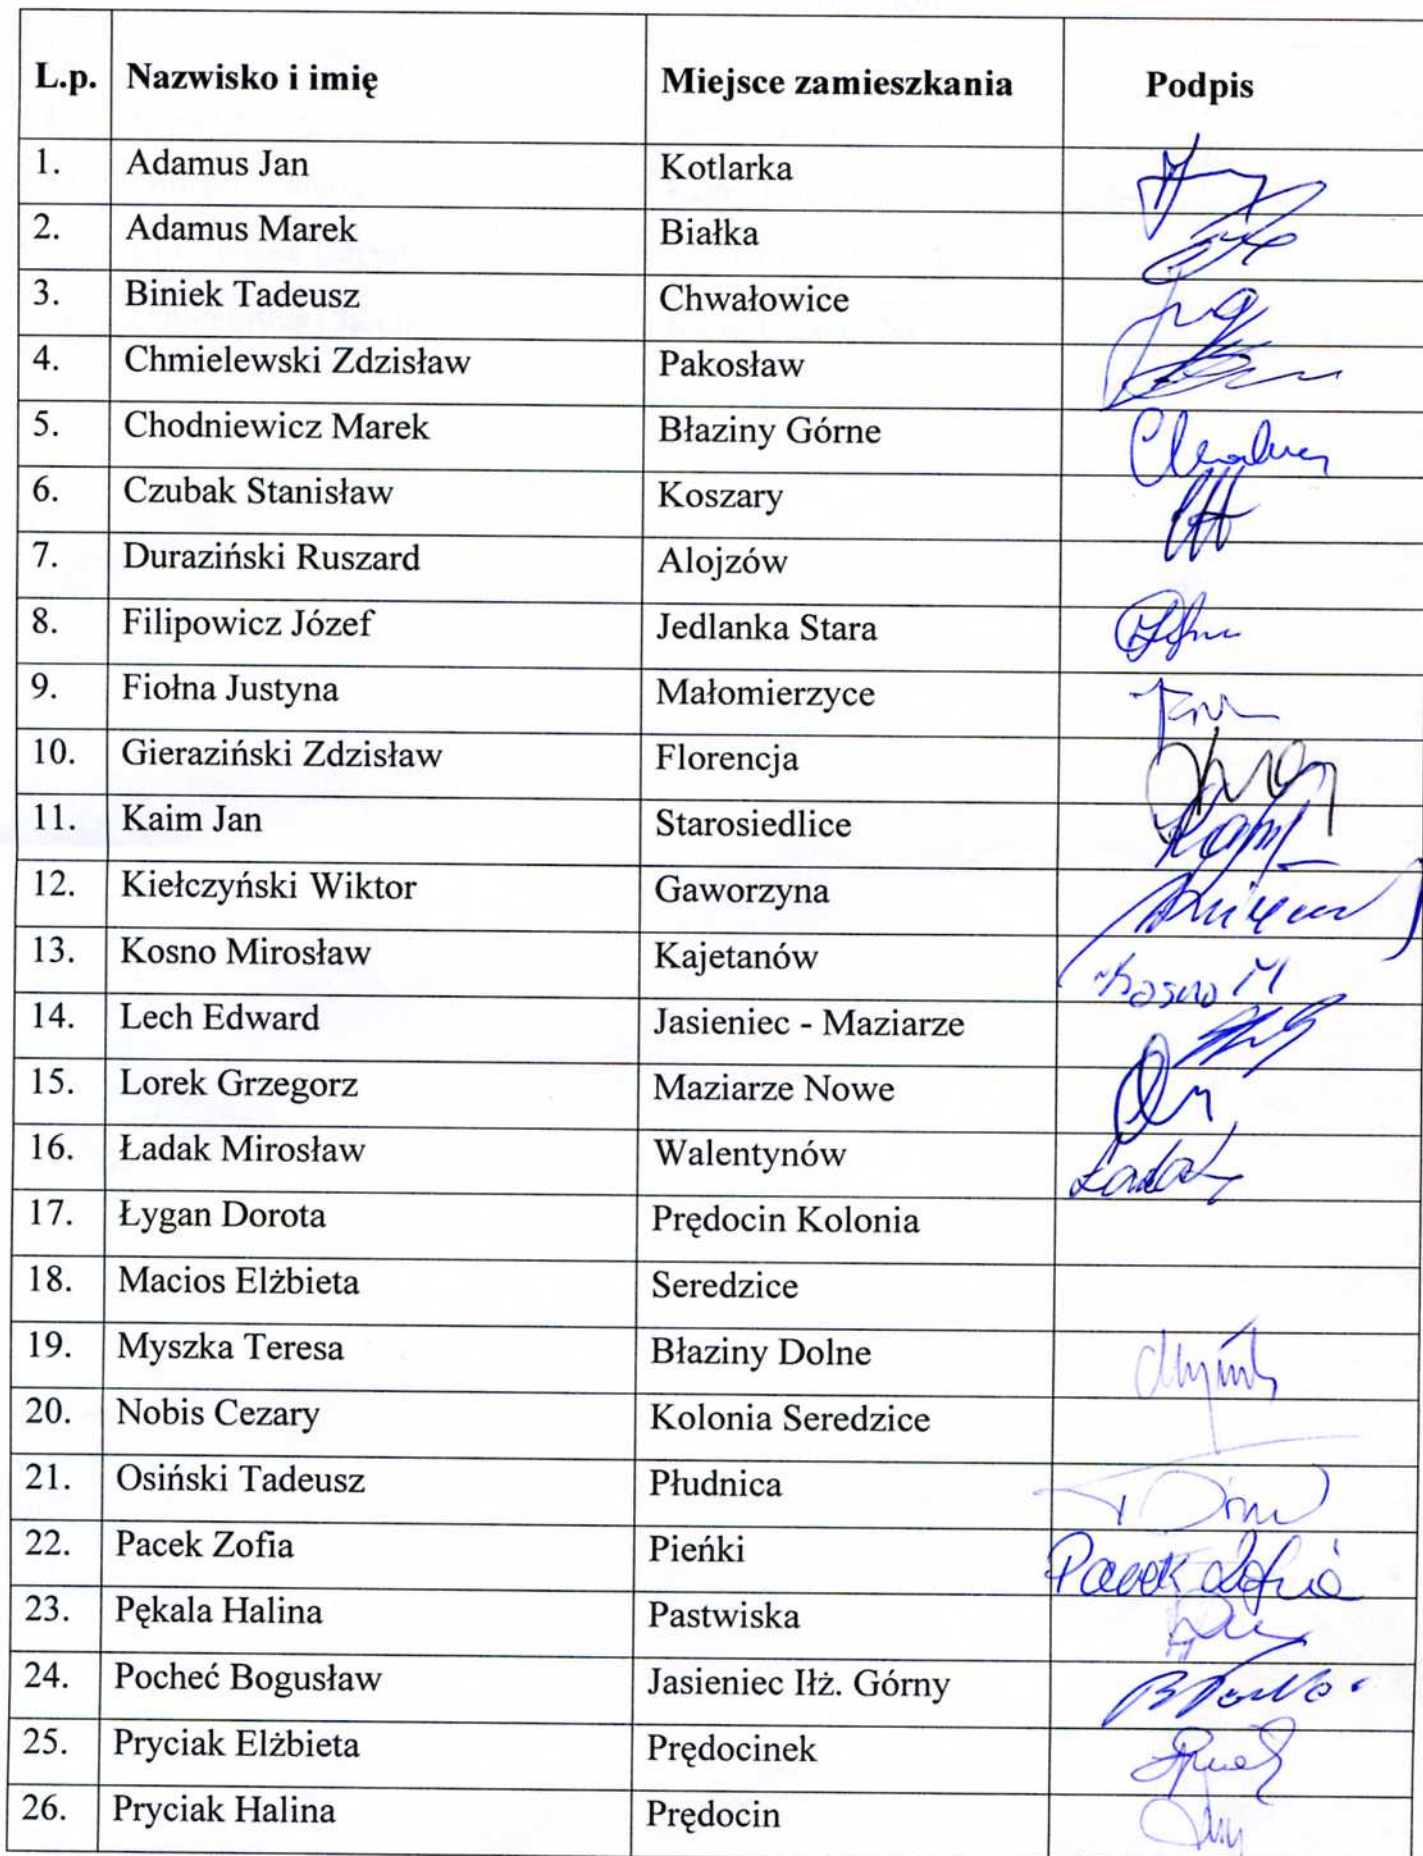 L.p. Nazwisko i imię Miejsce zamieszkania Podpis
1. Adamus Jan Kotlarka
2. Adamus Marek Białka
3. Biniek Tadeusz Chwałowice
4. Chmielewski Zdzisław Pakosław
5. Chodniewicz Marek Błaziny Górne
6. Czubak Stanisław Koszary
7. Duraziński Ruszard Alojzów
8. Filipowicz Józef Jedlanka Stara
9. Fiołna Justyna Małomierzyce
10. Gieraziński Zdzisław Florencja
11. Kaim Jan Starosiedlice
12. Kiełczyński Wiktor Gaworzyna
13. Kosno Mirosław Kajetanów Kosno M
14. Lech Edward Jasieniec - Maziarze
15. Lorek Grzegorz Maziarze Nowe
16. Ładak Mirosław Walentynów Ładak
17. Łygan Dorota Prędocin Kolonia
18. Macios Elżbieta Seredzice
19. Myszka Teresa Błaziny Dolne
20. Nobis Cezary Kolonia Seredzice
21. Osiński Tadeusz Płudnica
22. Pacek Zofia Pieńki Pacek Zofia
23. Pękala Halina Pastwiska
24. Pocheć Bogusław Jasieniec Iłż. Górny
25. Pryciak Elżbieta Prędocinek
26. Pryciak Halina Prędocin